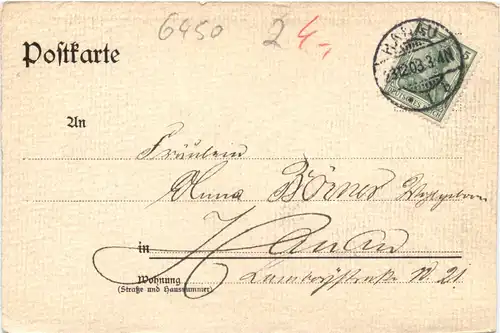 6450 2 4,-
HANAU
23.12.03. 3-4N
b
5
Postkarte
An
Fräulein
Anna Börner
in Hanau
Wohnung
(Straße und Hausnummer)
Lamboystraße N 21.